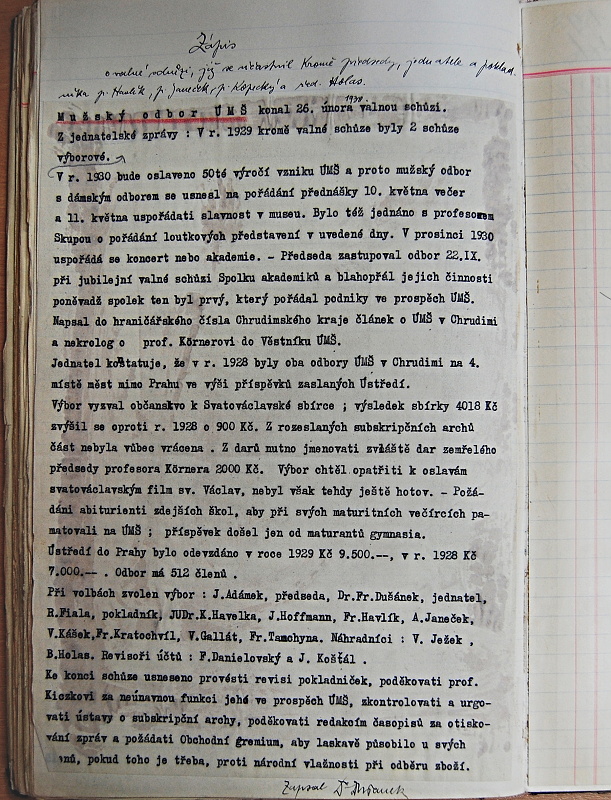 Zápis
o valné schůzi, jíž se účastnil kromě předsedy, jednatele a poklad
níka p. Havlík, p. Janeček, p. Klopecký a red. Holas.
Mužský odbor ÚMŠ konal 26. února 1930. valnou schůzi.
Z jednatelské zprávy : V r. 1929 kromě valné schůze byly 2 schůze
výborové.
V r. 1930 bude oslaveno 50té výročí vzniku ÚMŠ a proto mužský odbor
s dámským odborem se usnesl na pořádání přednášky 10. května večer
a 11. května uspořádati slavnost v museu. Bylo též jednáno s profesorem
Skupou o pořádání loutkových představení v uvedené dny. V prosinci 1930
uspořádá se koncert nebo akademie. - Předseda zastupoval odbor 22.IX.
při jubilejní valné schůzi Spolku akademiků a blahopřál jejich činnosti
poněvadž spolek ten byl prvý, který pořádal podniky ve prospěch ÚMŠ.
Napsal do hraničářského čísla Chrudimského kraje článek o ÚMŠ v Chrudimi
a nekrolog o prof. Körnerovi do Věstníku ÚMŠ.
Jednatel konstatuje, že v r. 1928 byly oba odbory ÚMŠ v Chrudimi na 4.
místě měst mimo Prahu ve výši příspěvků zaslaných Ústředí.
Výbor vyzval občanstvo k Svatováclavské sbírce ; výsledek sbírky 4018 Kč
zvýšil se oproti r. 1928 o 900 Kč. Z rozeslaných subskripčních archů
část nebyla vůbec vrácena . Z darů nutno jmenovati zvláště dar zemřelého
předsedy profesora Körnera 2000 Kč. Výbor chtěl opatřiti k oslavám
svatováclavským film sv. Václav, nebyl však tehdy ještě hotov. - Požá-
dáni abiturienti zdejších škol, aby při svých maturitních večírcích pa-
matovali na ÚMŠ ; příspěvek došel jen od maturantů gymnasia.
Ústředí do Prahy bylo odevzdáno v roce 1929 Kč 9.500.--, v r. 1928 Kč
7.000.-- . Odbor má 512 členů .
Při volbách zvolen výbor : J.Adámek, předseda, Dr.Fr.Dušánek, jednatel,
R.Fiala, pokladník, JUDr.K.Havelka, J.Hoffmann, Fr.Havlík, A.Janeček,
V.Kášek,Fr.Kratochvíl, V.Gallát, Fr.Tamchyna. Náhradníci : V. Ježek ,
B.Holas. Revisoři účtů : F.Danielovský a J. Košťál .
Ke konci schůze usneseno provésti revisi pokladniček, poděkovati prof.
Kiczkovi za neúnavnou funkci jeho ve prospěch ÚMŠ, zkontrolovati a urgo-
vati ústavy o subskripční archy, poděkovati redakcím časopisů za otisko-
vání zpráv a požádati Obchodní gremium, aby laskavě působilo u svých
nů, pokud toho je třeba, proti národní vlažnosti při odběru zboží.
Zapsal Dr Dušanek